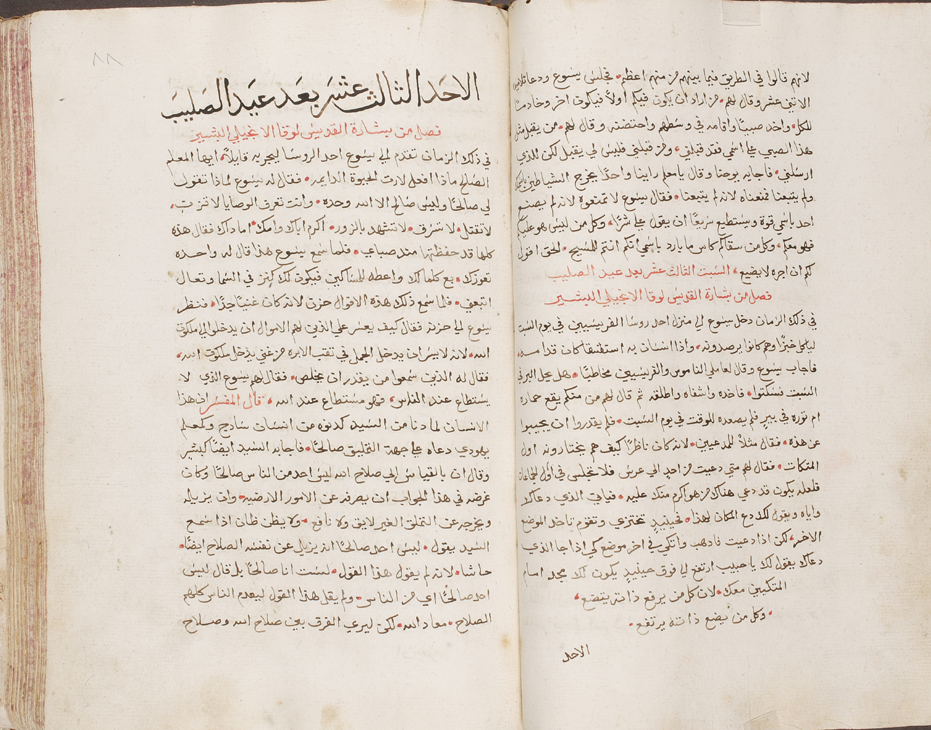 لانهم قالوا في الطريق فيما بينهم من منهم اعظم • فجلس يسوع ودعا تلاميذه
الاثني عشر وقال لهم • من اراد ان يكون فيكم اولاً فيكون اخر وخادماً
للكل • واخد صبياً واقامه في وسطهم واحتضنه وقال لهم • من يقبل مثل
هذا الصبي على اسمي فقد قبلني • ومن قبلني فليس لي يقبل لكن للدي
ارسلني • فاجابه يوحنا وقال يامعلم راينا واحداً يخرج الشياطين باسمك
ولم يتبعنا فمنعناه لانه لم يتبعنا • فقال يسوع لا تمنعوه لانه لم يصنع
احد باسمي قوة ويستطيع سريعاً ان يقول علي شراً • وكل من ليس هو عليكم
فهو معكم • وكل من سقاكم كاس ما بارد باسمي انكم انتم للمسيح • الحق اقول
لكم ان اجره لا يضيع • السبت الثالث عشر بعد عيد الصليب
فصل من بشارة القديس لوقا الانجيلي البشير
في ذلك الزمان دخل يسوع الى منزل احد روسا الفريسيين في يوم السبت
لياكل خبزاً وهم كانوا يرصدونه • واذا انسان به استسقا كان قدامه
فاجاب يسوع وقال لعلما الناموس والفريسيين مخاطباً • هل يحل البرء في
السبت فسكتوا • فاخده واشفاه واطلقه ثم قال لهم من منكم يقع حماره
ام ثوره في بير فلم يصعده للوقت في يوم السبت • فلم يقدروا ان يجيبوا
عن هذه • فقال مثلاً للمدعيين • لانه كان ناظراً كيف هم يختارونه اول
المتكات • فقال لهم متى دعيت من احد الى عرس • فلا تجلس في اول الجماعة
فلعله يكون قد دعي هناك من هو اكرم منك عليه • فياتي الذي دعاك
واياه ويقول لك دع المكان لهذا • فحينيدٍ تختزي وتقوم تاخد الموضع
الاخر • لكن اذا دعيت فادهب واتكي في اخر موضع كي اذا جا الدي
دعاك يقول لك يا حبيب ارتفع الى فوق حينيدٍ يكون لك مجد امام
المتكيين معك • لان كل من يرفع ذاته يتضع •
• وكل من يضع ذاته يرتفع •
الاحد
٨٨
الاحد الثالث عشر بعد عيد الصليب
فصل من بشارة القديس لوقا الانجيلي البشير
في ذلك الزمان تقدم الى يسوع احد الروسا ليجربه قايلاً • ايها المعلم
الصالح ماذا افعل لارث الحيوة الدايمه • فقال له يسوع لماذا تقول
لي صالحاً وليس صالح الا الله وحده • وانت تعرف الوصايا لا تزن •
لا تقتل • لا تسرق • لا تشهد بالزور • اكرم اباك وامك • اما داك فقال هذه
كلها قد حفظتها مند صباي • فلما سمع يسوع هذا قال له واحده
تعوزك • بع كلما لك واعطه للمساكين فيكون لك كنز في السما وتعال
اتبعني • فلما سمع ذلك هذه الاقوال حزن لانه كان غنياً جداً • فنظر
يسوع الى حزنه فقال كيف يعسر على الذين لهم الاموال ان يدخلوا الى ملكوت
الله • لانه لايسر ان يدخل الجمل في ثقب الابره من غني يدخل ملكوت الله •
فقال له الذين سمعوا من يقدر ان يخلص • فقال لهم يسوع الذي لا
يستطاع عند الناس • فهو مستطاع عند الله • قال المفسر ان هذا
الانسان لما دنا من السيد كدنوه من انسان سادج وكمعلم
يهودي دعاه على جهة التمليق صالحاً • فاجابه السيد ايضاً كبشر
وقال ان بالقياس الى صلاح الله ليس احد من الناس صالحاً وكان
غرضه في هذا الجواب ان يصرفه عن الامور الارضيه • وان يزيله
ويخرجه عن التملق الغير لايق ولا نافع • ولا يظن ظان اذا سمع
السيد يقول • ليس احد صالحاً انه يزيل عن نفسه الصلاح ايضاً •
حاشا • لانه لم يقول هذا القول • لست انا صالحاً بل قال ليس
احد صالحاً اي من الناس • ولم يقل هذا القول ليعدم الناس كلهم
الصلاح • معاد الله • لكن ليري الفرق بين صلاح الله وصلاح